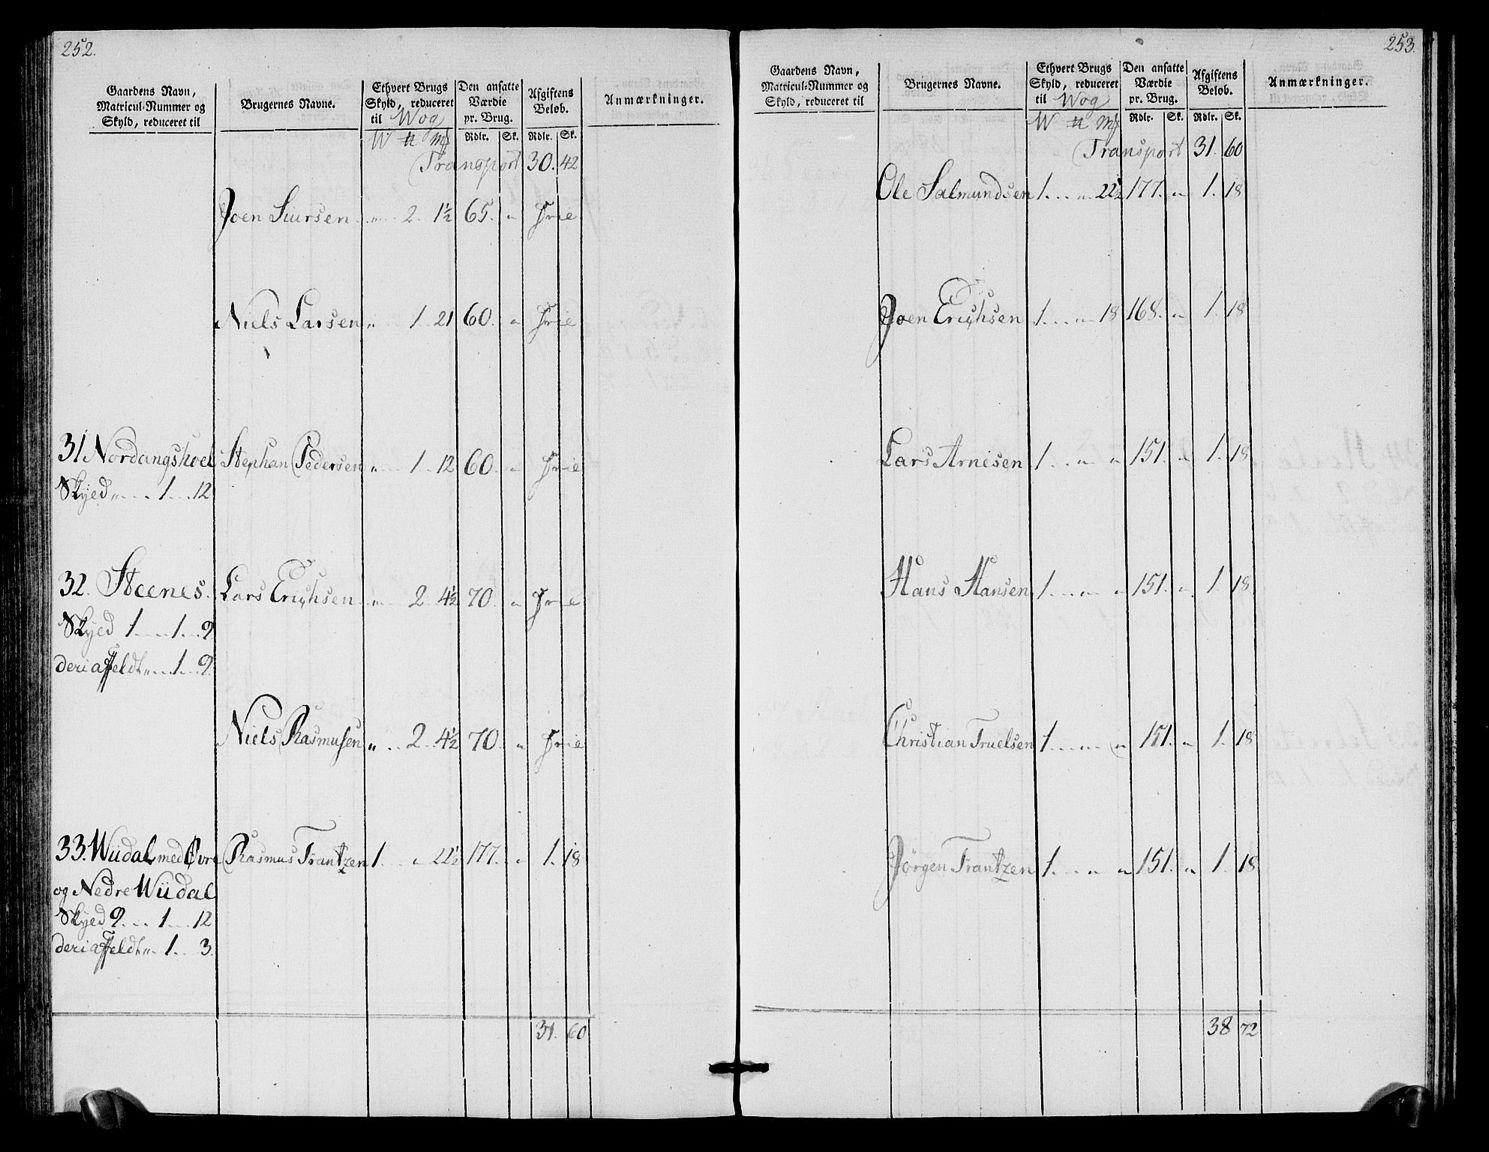 252.
Gaardens Navn, Matricul-Nummer og Skyld, reduceret til
Brugernes Navne.
Ethvert Brugs Skyld, reduceret til Wog
W ℔ mf
Den ansatte Værdie pr. Brug.
Rdlr. Sk.
Afgiftens Beløb.
Rdlr. Sk.
Anmærkninger.
Transport 30. 42
Joen Siursen „ 2. 1½ 65. „ Frie
Niels Larsen „ 1. 21 60. „ Frie
31 Nordangshoel Stephan Pedersen „ 1. 12 60. „ Frie
Skyed „ 1. 12
32. Steenes. Lars Erichsen „ 2. 4½ 70. „ Frie
Skyed 1. 1. 9
deriaf Feldt „ 1. 9.
Niels Rasmusen „ 2. 4½ 70. „ Frie
33. Wüdal med Øvre Rasmus Frantzen 1. „ 22½ 177. „ 1. 18
og Nedre Wüdal
Skyed 9. 1. 12
deriaf Feldt „ 1. 3.
31. 60
253.
Gaardens Navn, Matricul-Nummer og Skyld, reduceret til
Brugernes Navne.
Ethvert Brugs Skyld, reduceret til Wog
W ℔ mf
Den ansatte Værdie pr. Brug.
Rdlr. Sk.
Afgiftens Beløb.
Rdlr. Sk.
Anmærkninger.
Transport 31. 60
Ole Salmundsen 1. „ 22½ 177. „ 1. 18
Joen Erichsen 1. „ 18 168. „ 1. 18
Lars Arnesen 1. „ „ 151. „ 1. 18
Hans Hansen 1. „ „ 151. „ 1. 18
Christian Truelsen 1. „ „ 151. „ 1. 18
Jörgen Frantzen 1. „ „ 151. „ 1. 18
38 72